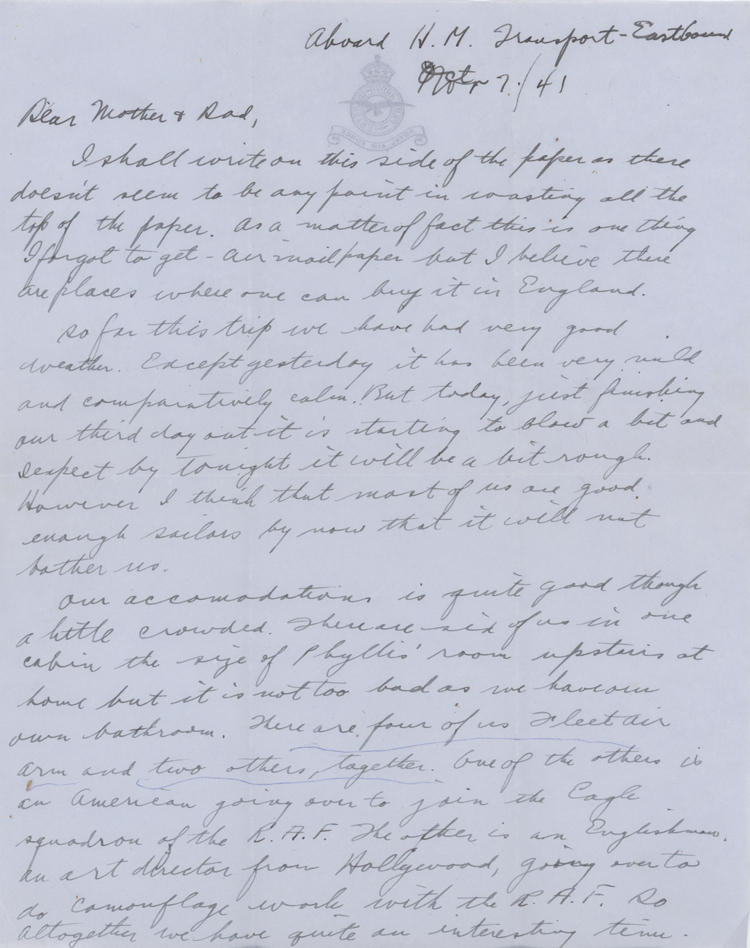 Aboard H. M. Transport-Eastbound
7/41
Dear Mother & Dad,
I shall write on this side of the paper as there
doesn't seem to be any point in wasting all the
top of the paper. As a matter of fact this is one thing
I forgot to get - air mail paper but I believe there
are places where one can buy it in England.
So far this trip we have had very good
weather. Except yesterday it has been very mild
and comparatively calm. But today, just finishing
our third day out it is starting to blow a bit and
I expect by tonight it will be a bit rough.
However I think that most of us are good
enough sailors by now that it will not
bother us.
Our accomodations is quite good though
a little crowded. There are six of us in one
cabin the size of Phyllis' room upstairs at
home but it is not too bad as we have our
own bathroom. There are four of us Fleet Air
Arm and two others, together. One of the others is
an American going over to join the Eagle
squadron of the R.A.F. The other is an Englishman,
an art director from Hollywood, going over to
do camouflage work with the R.A.F. So
altogether we have quite an interesting time.